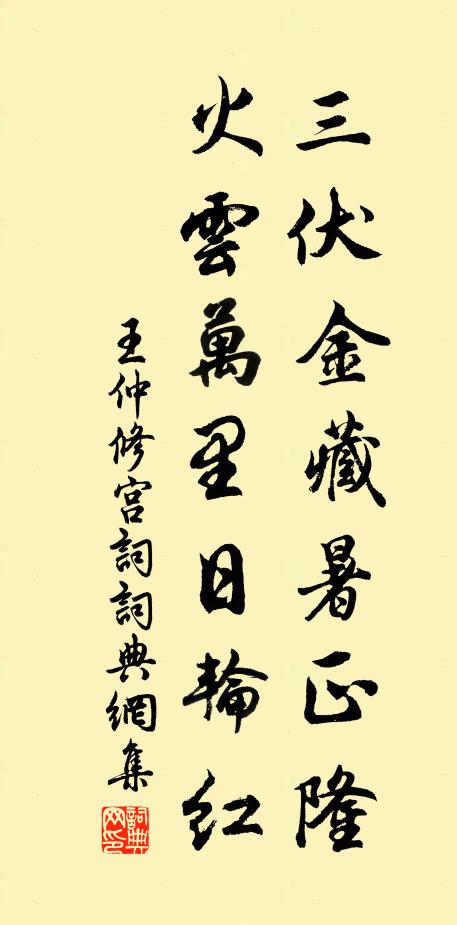 三伏金藏暑正隆
火雲萬里日輪紅
王仲修宮詞詞典網集
詞典網印